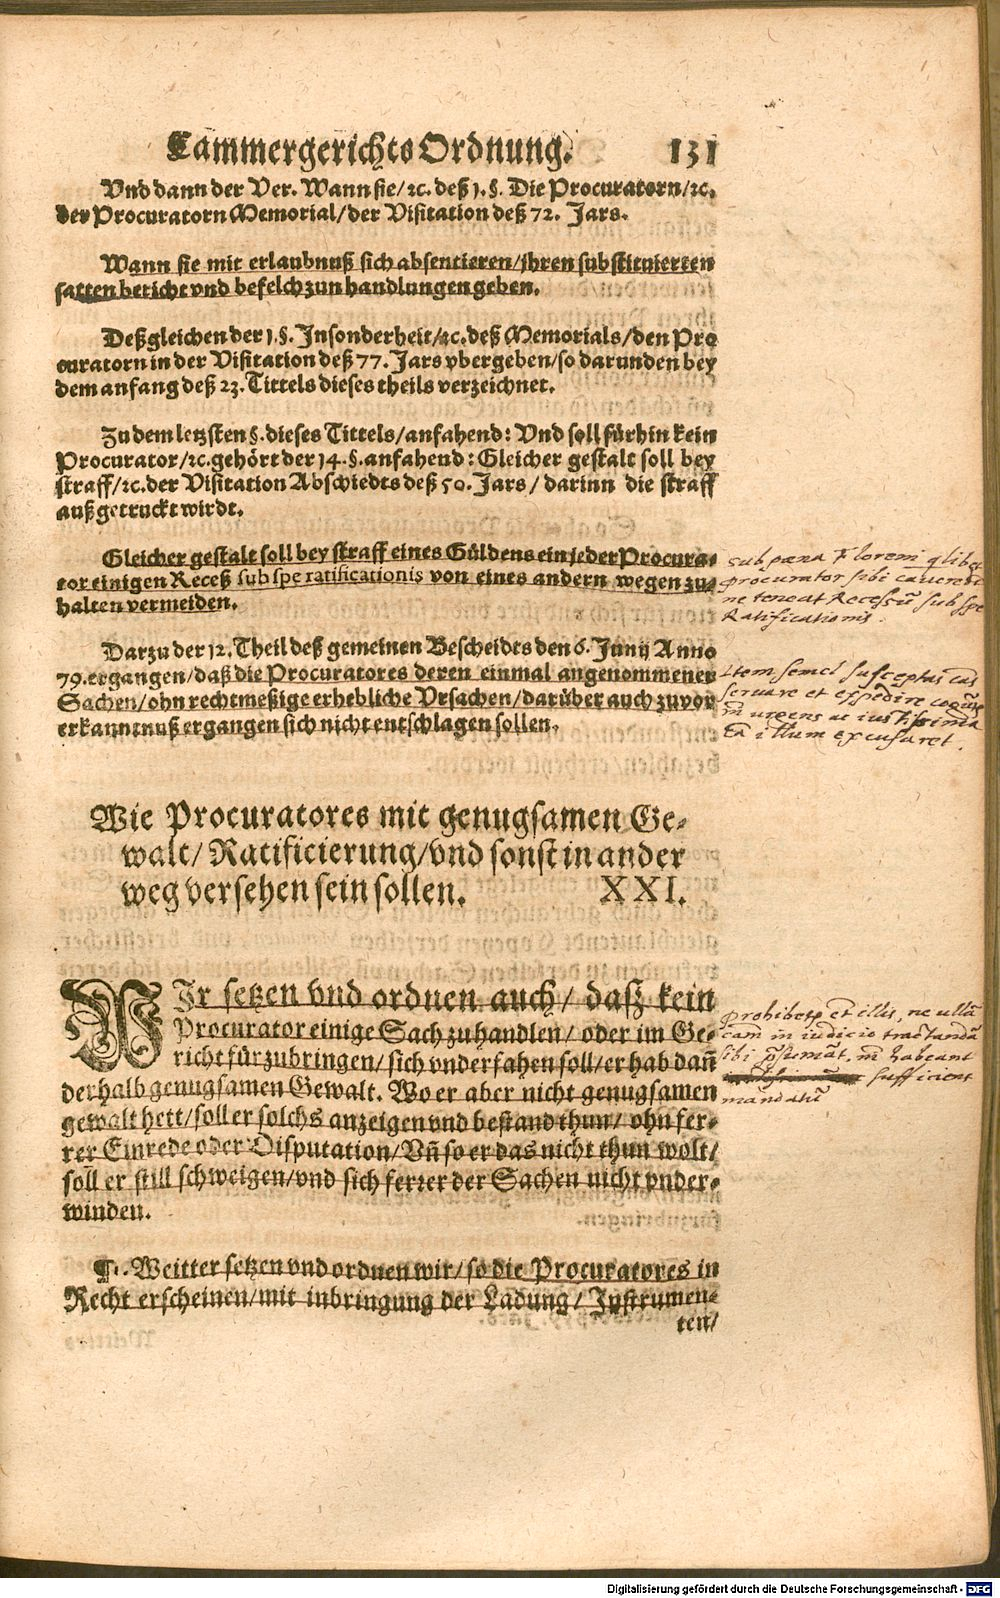 Cammergerichts Ordnung. 131
Vnd dann der Ver. Wann sie/ꝛc. deß 1. §. Die Procuratorn/ꝛc.
der Procuratorn Memorial/der Visitation deß 72. Jars.
Wann sie mit erlaubnuß sich absentieren/jhren substituierten
satten bericht vnd befelch zun handlungen geben.
Deßgleichen der 1. §. Insonderheit/ꝛc. deß Memorials/den Pro
curatorn in der Visitation deß 77. Jars vbergeben/so darunden bey
dem anfang deß 23. Tittels dieses theils verzeichnet.
Zu dem letzsten §. dieses Tittels/anfahend: Vnd soll fürhin kein
Procurator/ꝛc. gehört der 14. §. anfahend: Gleicher gestalt soll bey
straff/ꝛc. der Visitation Abschiedts deß 50. Jars/ darinn die straff
außgetruckt wirdt.
Gleicher gestalt soll bey straff eines Güldens ein jeder Procura-
tor einigen Receß sub spe ratificationis von eines andern wegen zu-
halten vermeiden.
sub pœna Floreni qlibet
procurator sibi cavere
ne teneat Recessũ sub spe
Ratificationis.
Darzu der 12. Theil deß gemeinen Bescheidts den 6. Junij Anno
79. ergangen/daß die Procuratores deren einmal angenommener
Sachen/ohn rechtmeßige erhebliche Vrsachen/darüber auch zuvor
erkanntnuß ergangen sich nicht entschlagen sollen.
Item semel susceptas
servare et expedire
urgens ac iustissima
illum excusaret.
Wie Procuratores mit genugsamen Ge-
walt/ Ratificierung/vnd sonst in ander
weg versehen sein sollen. XXI.
WIr setzen vnd ordnen auch/ daß kein
Procurator einige Sach zuhandlen/ oder im Ge-
richt fürzubringen/sich vnderfahen soll/er hab dañ
derhalb genugsamen Gewalt. Wo er aber nicht genugsamen
gewalt hett/soll er solchs anzeigen vnd bestand thun/ ohn fer-
rer Einrede oder Disputation/Vñ so er das nicht thun wolt/
soll er still schweigen/vnd sich ferrer der Sachen nicht vnder-
winden.
prohibetꝛ et illis, ne ullã
cam in iudicio tractandã
sibi habeant
sufficient
mandatũ
¶ Weitter setzen vnd ordnen wir/so die Procuratores in
Recht erscheinen/mit inbringung der Ladung/ Instrumen-
ten/
Digitalisierung gefördert durch die Deutsche Forschungsgemeinschaft - DFG